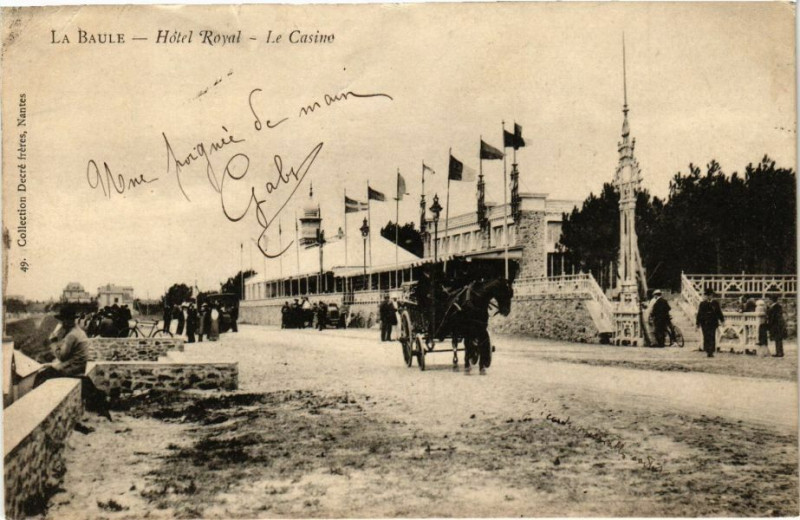 LA BAULE — Hôtel Royal - Le Casino
Une poignée de main
Gaby
49. Collection Decré frères, Nantes